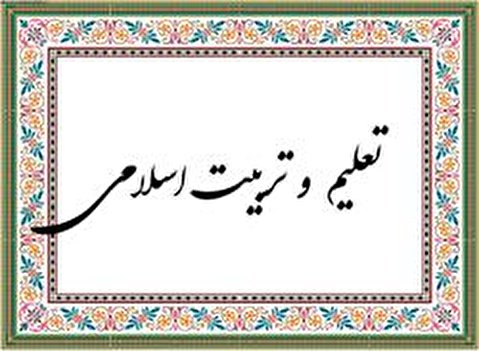 تعلیم و تربیت اسلامی